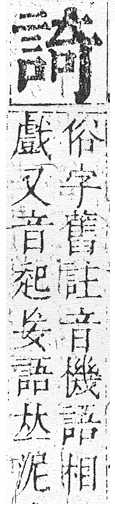 䛴
俗字舊註音機語相
戲又音起妄語𠀤泥